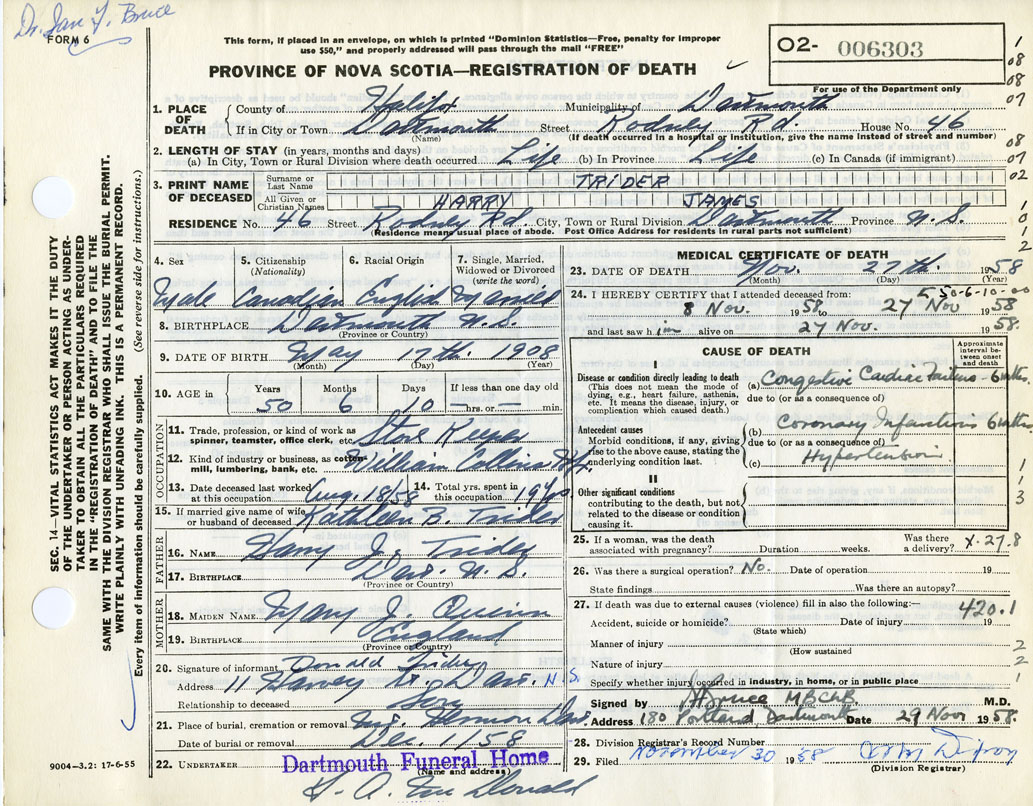 Dr. Ian F. Bruce
FORM 6
This form, if placed in an envelope, on which is printed "Dominion Statistics—Free, penalty for improper
use $50," and properly addressed will pass through the mail "FREE"
PROVINCE OF NOVA SCOTIA—REGISTRATION OF DEATH
O2- 006303
For use of the Department only
1
08
08
07
08
07
02
1
0
1
2
1. PLACE OF DEATH { County of Halifax Municipality of Dartmouth
If in City or Town Dartmouth Street Rodney Rd. House No. 46
(Name) (If death occurred in a hospital or institution, give the name instead of street and number)
2. LENGTH OF STAY (in years, months and days)
(a) In City, Town or Rural Division where death occurred Life (b) In Province Life (c) In Canada (if immigrant)
3. PRINT NAME OF DECEASED { Surname or Last Name TRIDER
All Given or Christian Names HARRY JAMES
RESIDENCE No. 46 Street Rodney Rd. City, Town or Rural Division Dartmouth Province N.S.
(Residence means usual place of abode. Post Office Address for residents in rural parts not sufficient)
SEC. 14—VITAL STATISTICS ACT MAKES IT THE DUTY
OF THE UNDERTAKER OR PERSON ACTING AS UNDER-
TAKER TO OBTAIN ALL THE PARTICULARS REQUIRED
IN THE "REGISTRATION OF DEATH" AND TO FILE THE
SAME WITH THE DIVISION REGISTRAR WHO SHALL ISSUE THE BURIAL PERMIT.
WRITE PLAINLY WITH UNFADING INK. THIS IS A PERMANENT RECORD.
Every item of information should be carefully supplied. (See reverse side for instructions.)
4. Sex 5. Citizenship (Nationality) 6. Racial Origin 7. Single, Married, Widowed or Divorced (write the word)
Male Canadian English Married
8. BIRTHPLACE Dartmouth N.S.
(Province or Country)
9. DATE OF BIRTH May 17th. 1908
(Month) (Day) (Year)
10. AGE in { Years 50 Months 6 Days 10 If less than one day old
hrs. or min.
OCCUPATION
11. Trade, profession, or kind of work as spinner, teamster, office clerk, etc. Store Keeper
12. Kind of industry or business, as cotton-mill, lumbering, bank, etc. William Collins
13. Date deceased last worked at this occupation Aug. 18/58 14. Total yrs. spent in this occupation 19
15. If married give name of wife or husband of deceased Kathleen B. Trider
FATHER
16. NAME Harry J. Trider
17. BIRTHPLACE Dar. N.S.
(Province or Country)
MOTHER
18. MAIDEN NAME Mary J. Quinn
19. BIRTHPLACE England
(Province or Country)
20. Signature of informant Donald Trider
Address 11 Harvey St. Dart. N.S.
Relationship to deceased Son
21. Place of burial, cremation or removal Mt. Hermon Dar.
Date of burial or removal Dec. 1/58
22. UNDERTAKER Dartmouth Funeral Home
(Name and address)
9004—3.2: 17-6-55
MEDICAL CERTIFICATE OF DEATH
23. DATE OF DEATH Nov. 27th. 1958
(Month) (Day) (Year)
550-6-10-00
24. I HEREBY CERTIFY that I attended deceased from:
8 Nov. 1958 to 27 Nov 1958
and last saw him alive on 27 Nov. 1958.
CAUSE OF DEATH
Approximate interval between onset and death
I
Disease or condition directly leading to death
(This does not mean the mode of dying, e.g., heart failure, asthenia, etc. It means the disease, injury, or complication which caused death.)
(a) Congestive Cardiac Failure - 6 mths.
due to (or as a consequence of)
Antecedent causes
Morbid conditions, if any, giving rise to the above cause, stating the underlying condition last.
(b) Coronary Infarction 6 mths
due to (or as a consequence of)
(c) Hypertension
II
Other significant conditions
contributing to the death, but not related to the disease or condition causing it.
1
1
3
25. If a woman, was the death associated with pregnancy? Duration weeks. Was there a delivery? X-27.8
26. Was there a surgical operation? No. Date of operation 19
State findings Was there an autopsy?
27. If death was due to external causes (violence) fill in also the following:— 420.1
Accident, suicide or homicide? Date of injury 19
(State which)
Manner of injury 2
(How sustained
Nature of injury 2
Specify whether injury occurred in industry, in home, or in public place 1
Signed by Bruce M.B.Ch.B. M.D.
Address 180 Portland Dartmouth Date 29 Nov 1958.
28. Division Registrar's Record Number
29. Filed November 30 1958
(Division Registrar)